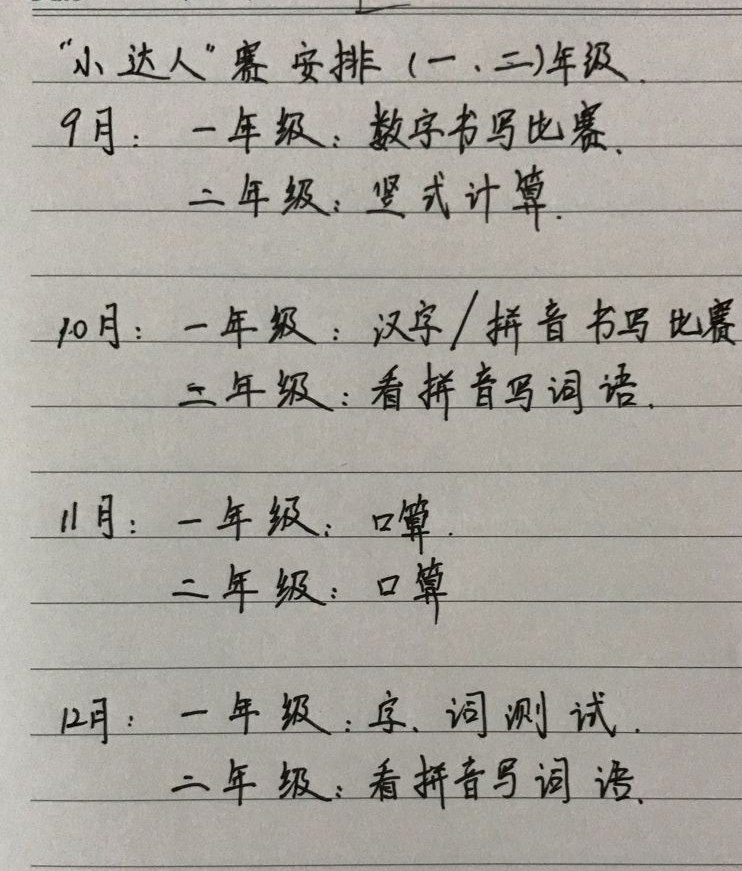 “小达人”赛安排(一、二)年级.
9月：一年级：数字书写比赛.
二年级：竖式计算.
10月：一年级：汉字/拼音书写比赛
二年级：看拼音写词语.
11月：一年级：口算.
二年级：口算
12月：一年级：字、词测试.
二年级：看拼音写词语.